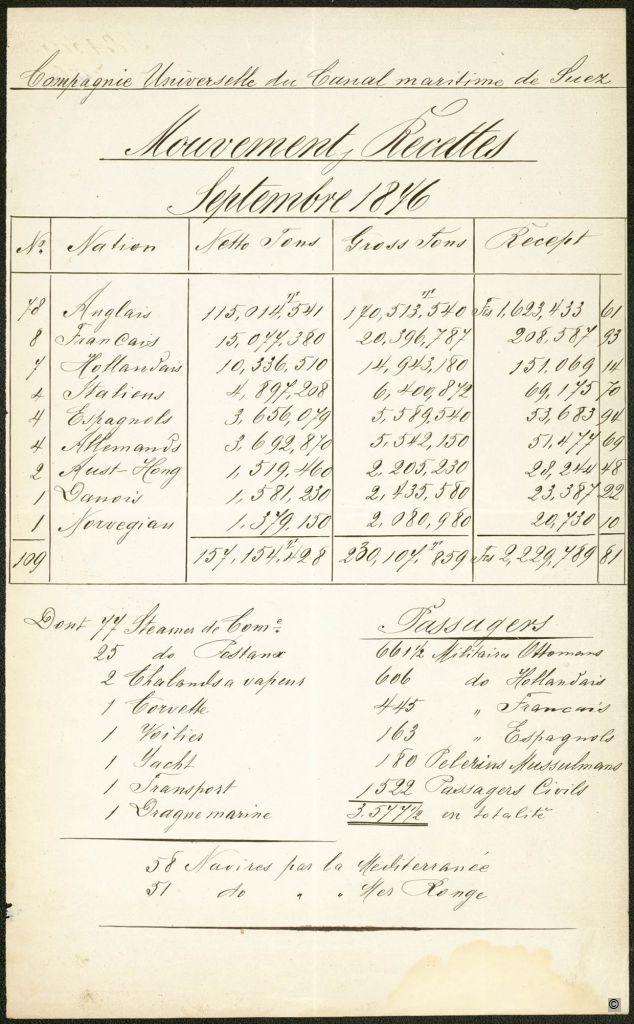 Compagnie Universelle du Canal maritime de Suez
Mouvement, Recettes
Septembre 1876
No. Nation Netto Tons Gross Tons Recept
78 Anglais 115,014.T541 170,513.T540 Frs 1,623,433 61
8 Francais 15,077,380 20,396,787 208,587 93
7 Hollandais 10,336,510 14,943,180 151,069 14
4 Italiens 4,897,208 6,400,872 69,175 70
4 Espagnols 3,656,079 5,589,540 53,683 94
4 Allemands 3,692,870 5,542,150 51,477 69
2 Aust-Hong 1,519,460 2,205,230 28,244 48
1 Danois 1,581,230 2,435,580 23,387 22
1 Norvegian 1,379,150 2,080,980 20,730 10
109 157,154.T428 230,107.T859 Frs 2,229,789 81
Dont 77 Steamer de Come.
25 do Postaux
2 Chalands a vapeur
1 Corvette
1 Voilier
1 Yacht
1 Transport
1 Drague marine
Passagers
661½ Militaires Ottomans
606 do Hollandais
445 " Francais
163 " Espagnols
180 Pelerins Mussulmans
1522 Passagers Civils
3.577½ en totalité
58 Navires par la Mediterranée
51 do " " Mer Rouge
©